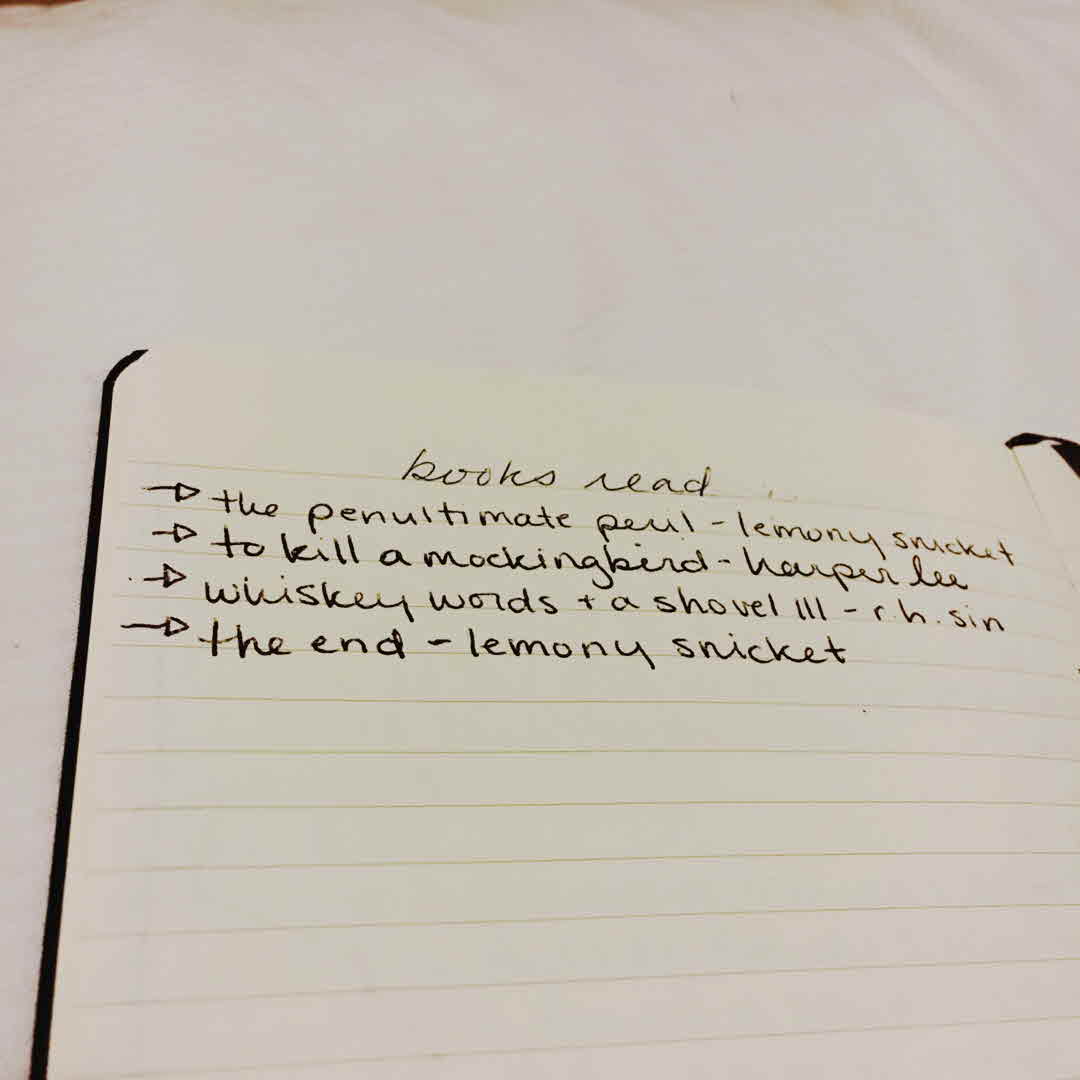 books read
→ the penultimate peril - lemony snicket
→ to kill a mockingbird - harper lee
→ whiskey words + a shovel III - r.h. sin
→ the end - lemony snicket